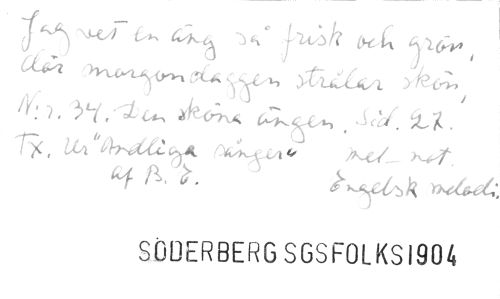 Jag vet en äng så frisk och grön,
där morgondaggen strålar skön,
N:r. 34. Den sköna ängen. Sid. 27.
Tx. Ur "Andliga sånger" mel_ not.
af B. E. Engelsk melodi.
SÖDERBERG SGSFOLKS1904